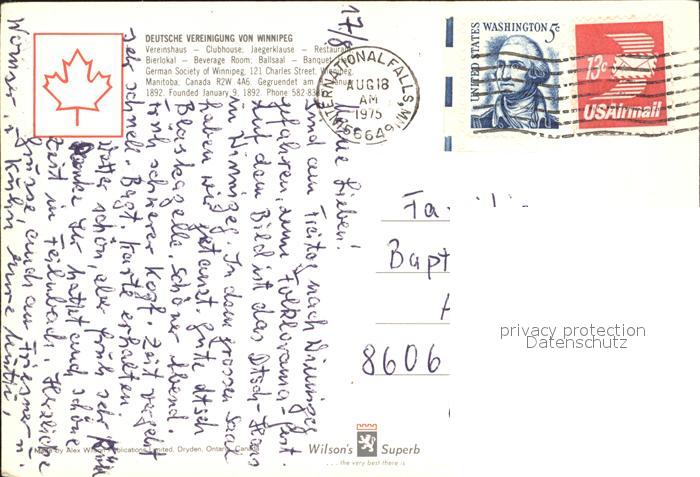 DEUTSCHE VEREINIGUNG VON WINNIPEG
Vereinshaus – Clubhouse; Jaegerklause – Restaurant
Bierlokal – Beverage Room; Ballsaal – Banquet
German Society of Winnipeg, 121 Charles Street, Winnipeg,
Manitoba, Canada R2W 4A6. Gegruendet am
1892. Founded January 9, 1892. Phone 582-83
INTERNATIONAL FALLS, MN
AUG 18
AM
1975
56649
UNITED STATES WASHINGTON 5c
13c
US Airmail
17/8
Meine Lieben!
Sind am Freitag nach Winnipeg
gefahren, zum Folklorama-Fest.
Auf dem Bild ist das Dtsch-Haus
in Winnipeg. In dem grossen Saal
haben wir getanzt. Gute dtsch
Blaskapelle. Schöner Abend.
Früh schwerer Kopf. Zeit vergeht
sehr schnell. Bagt. Karte erhalten.
Wetter schön, aber früh sehr kühl
Danke Ihr hattet auch schöne
Zeit in Feilnbach. Herzliche
Grüsse, auch an
Wormser u. Kuhn, eure Mutti,
Fa
Bapt
8606
privacy protection
Datenschutz
Made by Alex Wilson Publications Limited, Dryden, Ontario, Canada
Wilson's Superb
... the very best there is